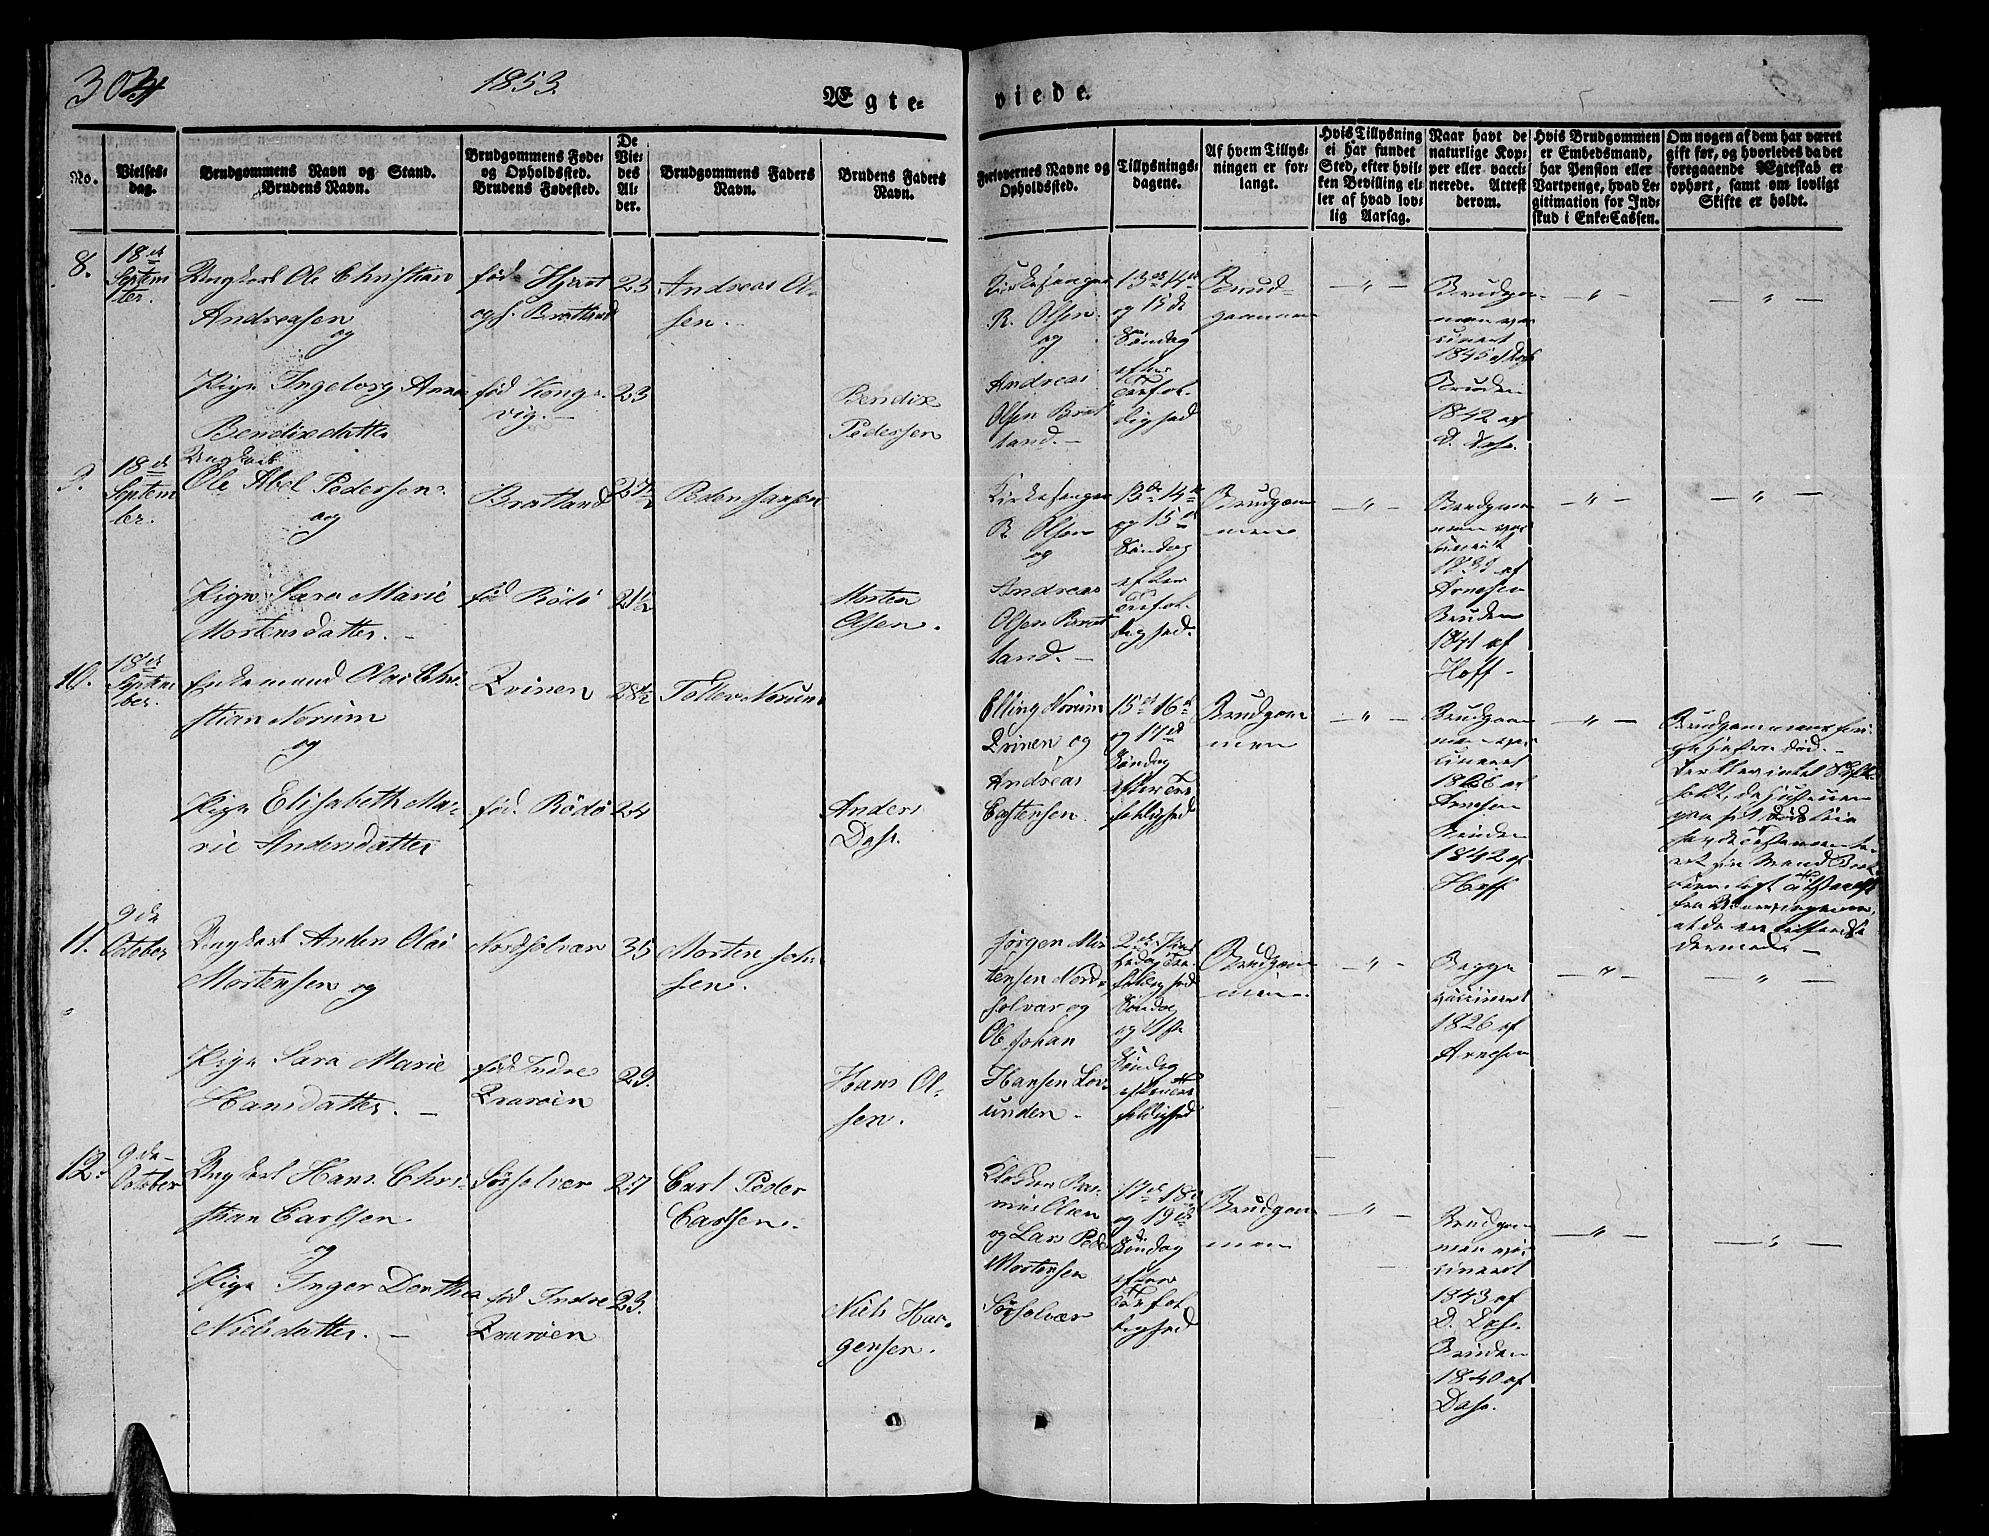 304
1853.
Ægte-
viede.
No.
Vielses-
dag.
Brudgommens Navn og Stand.
Brudens Navn.
Brudgommens Føde-
og Opholdssted.
Brudens Fødested.
De
Vie-
des
Al-
der.
Brudgommens Faders
Navn.
Brudens Faders
Navn.
Forlovernes Navne og
Opholdssted.
Tillysnings-
dagene.
Af hvem Tillys-
ningen er for-
langt.
Hvis Tillysning
ei har fundet
Sted, efter hvil-
ken Bevilling el-
ler af hvad lov-
lig Aarsag.
Naar havt de
naturlige Kop-
per eller vacci-
nerede. Attest
derom.
Hvis Brudgommen
er Embedsmand,
har Pension eller
Vartpenge, hvad Le-
gitimation for Ind-
skud i Enke-Cassen.
Om nogen af dem har været
gift før, og hvorledes da det
foregaaende Ægteskab er
ophørt, samt om lovligt
Skifte er holdt.
8.
18de
Septem
ber.
Ungkarl Ole Christian
Andreassen
og
Pige Ingeborg Anna
Bendixdatter
fød
og f. Bratland
fød Kongs-
vig.
23
23
Andreas Ol-
sen.
Bendix
Pedersen
Kirkesanger
R. Olsen
og
Andreas
Olsen Brat
land.
13de 14de
og 15de
Søndag
efter
Trefol-
dighed
Brud-
gommen
Brudgom-
men vac-
cineret
1845 af
Bruden
1842 af
D. Dass.
9.
18de
Septem
ber.
Ungkarl
Ole Abel Pedersen
og
Pige Sara Marie
Mortensdatter.
Bratland
fød Rödö
27½
21½
Peder Jansen
Morten
Olsen.
Kirkesanger
R Olsen
og
Andreas
Olsen Brat
land.
13de 14de
og 15de
Søndag
efter
Trefol-
dighed.
Brudgom
men
Brudgom
men vac
cineret
af
Arnesen
Bruden
1841 af
Hoff
10.
18de
Septem
ber.
Enkemand Olai Chri-
stian Norum
og
Pige Elisabeth Ma-
rie Andersdatter
Qvinen
fød. Rödö
28½
24
Tollev Norum
Anders
Dass.
Elling Norum
Qvinen og
Andreas
Carstensen.
15de 16de
og 17de
Søndag
efter Tre
foldighed
Brudgom
men
Brudgom
men vac
cineret
1826 af
Arnesen
Bruden
1842 af
Hoff
Brudgommens for-
ige Hustru død.
11.
9de
October
Ungkarl Anders Olai
Mortensen og
Pige Sara Marie
Hansdatter.
Nordsolvær
fød Indre
Qvarøen
35
29.
Morten Joh-
sen.
Hans Ol-
sen.
Jørgen Mor
tensen Nord
solvær og
Ole Johan
Hansen Lov-
unden
Søndag
og
Søndag
efter Tre
foldighed
Brudgom
men
Begge
vaccineret
1826 af
Arnesen
12.
9de
October
Ungkarl Hans Chri-
stian Carlsen
og
Pige Inger Dorthea
Nielsdatter.
Sørsolvær
fød Indre
Qvarøen
27
23.
Carl Peder
Carlsen.
Niels Han-
gensen.
Klokker Ras-
mus Olsen
og Lars Peder
Mortensen
Sørsolvær
17de 18de
og 19de
Søndag
efter
Trefol
dighed
Brudgom
men
Brudgom
men vac
cineret
1843 af
D. Dass.
Bruden
1840 af
Dass.